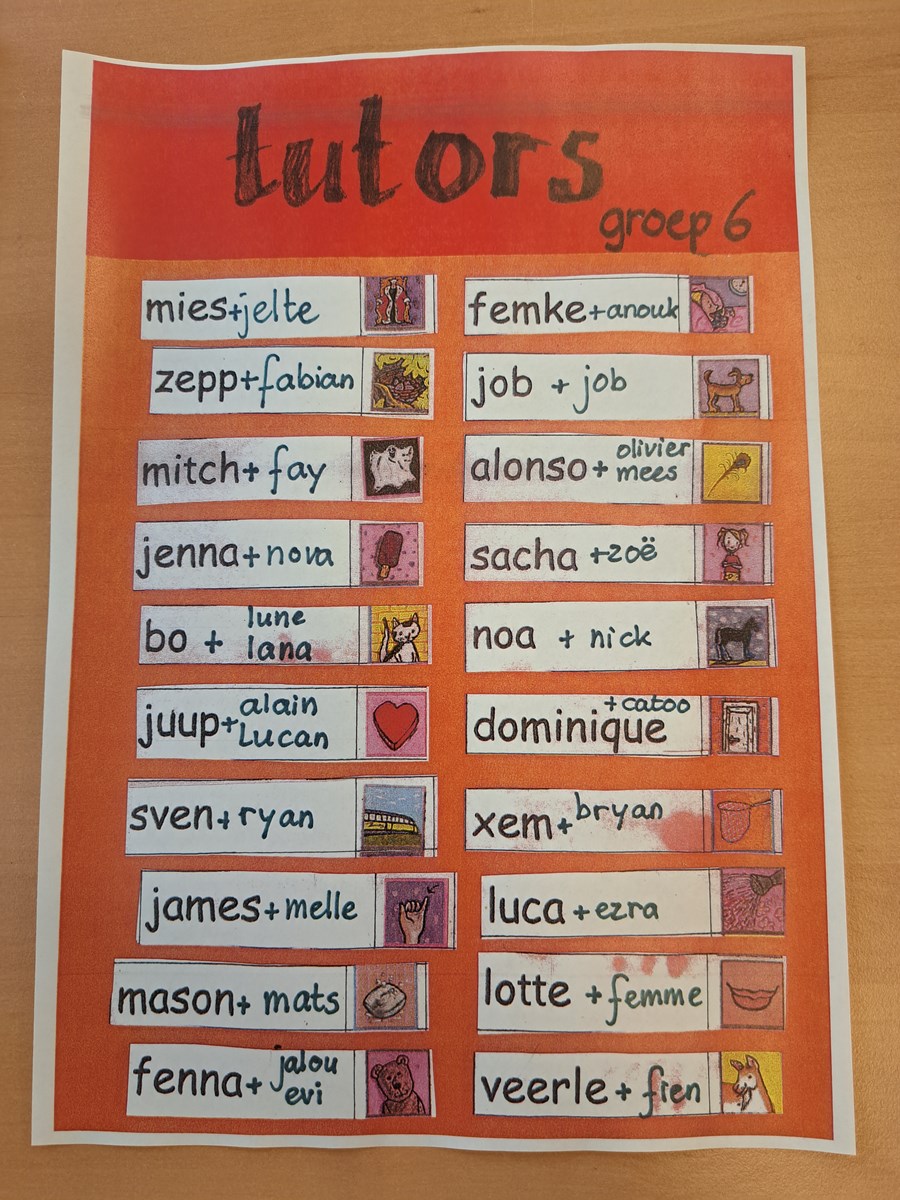 tutors
groep 6
mies+jelte
zepp+fabian
mitch+ fay
jenna+nova
bo + lune
lana
juup+alain
Lucan
sven+ryan
james+melle
mason+ mats
fenna+ jalou
evi
femke+anouk
job + job
alonso+ olivier
mees
sacha +zoë
noa + nick
dominique +catoo
xem+bryan
luca +ezra
lotte +femme
veerle + fien